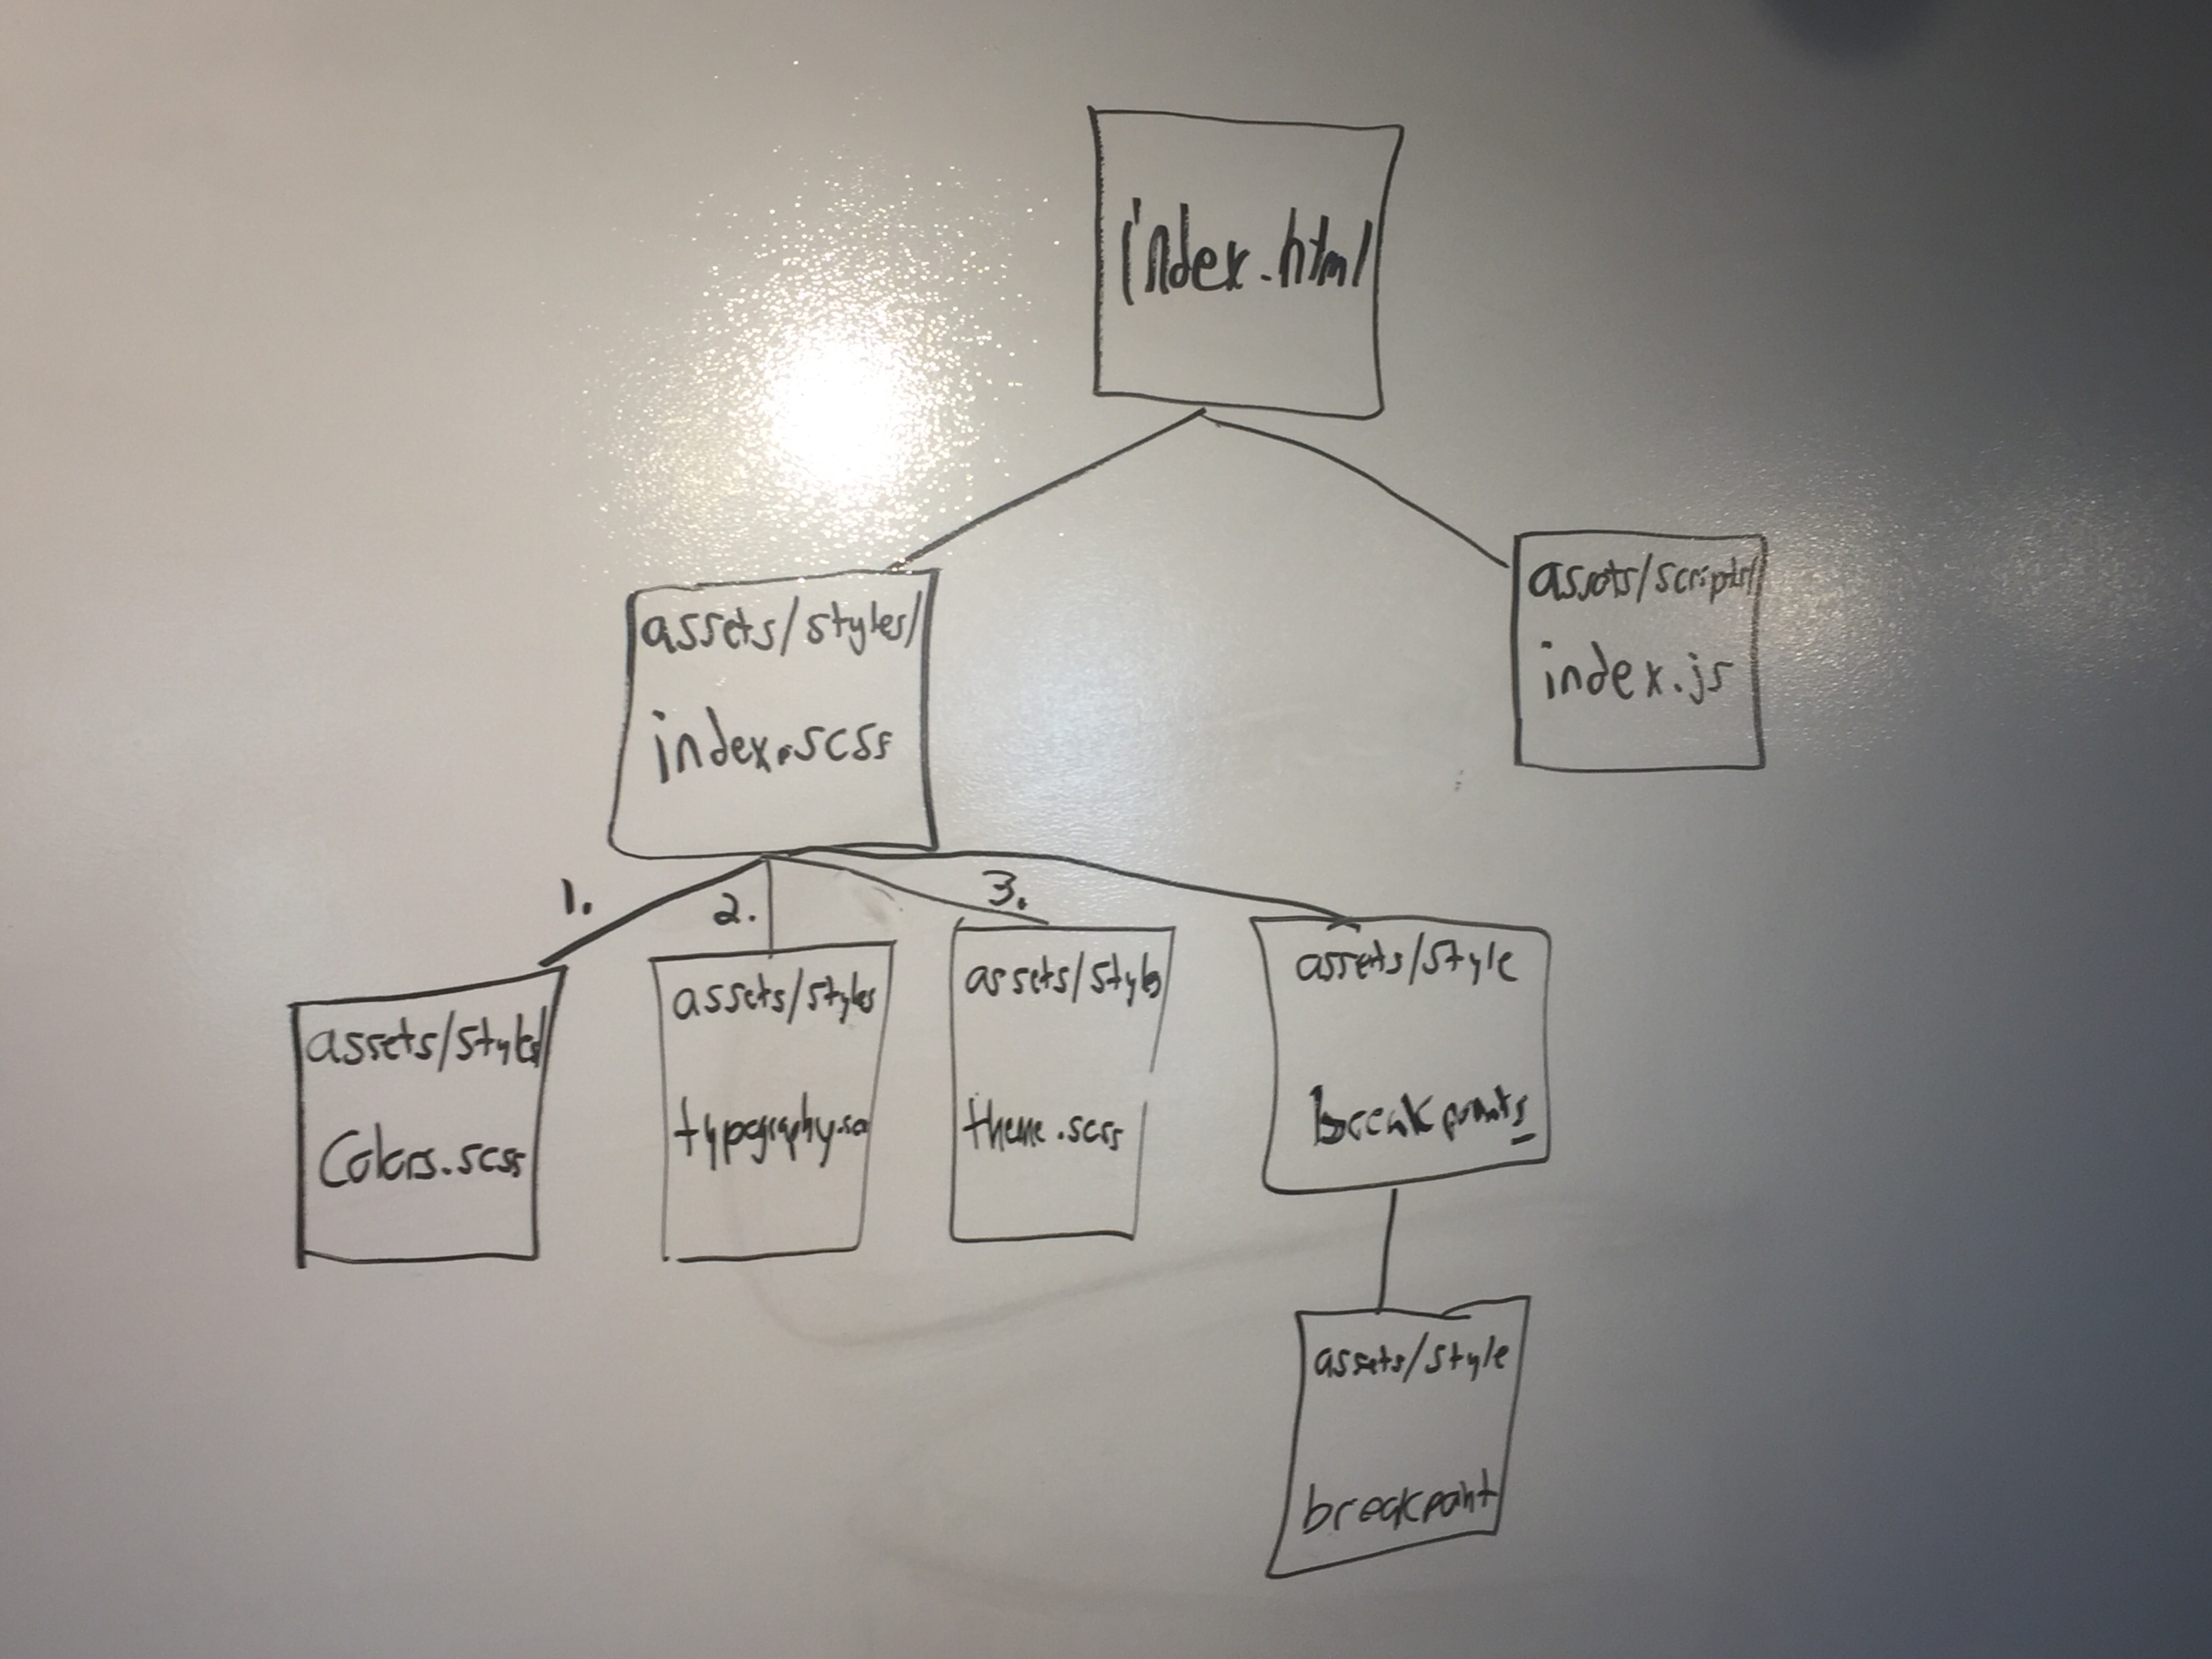 index.html
assets/scripts/
index.js
assets/styles/
index.scss
1.
2.
3.
assets/styles/
Colors.scss
assets/styles
typography.sc
assets/styles
theme.scss
assets/style
breakpoints
assets/style
breakpoint